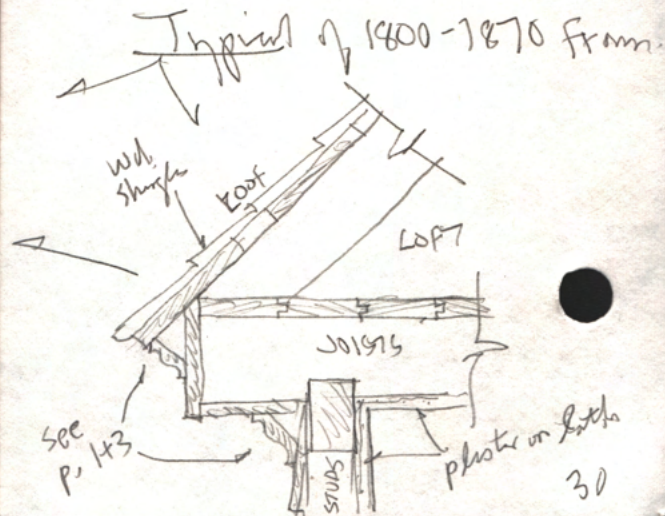 Typical of 1800-1870 Fram
wd.
shingles
ROOF
LOFT
JOISTS
see
p. 1+3
STUDS
plaster on lath
30